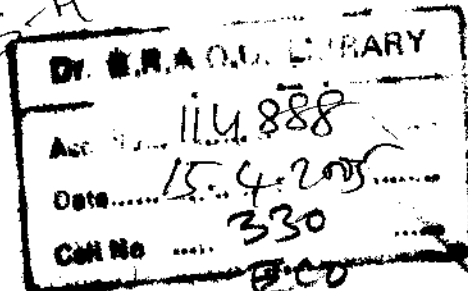 Dr. B.R.A.O.U. LIBRARY
Acc. No..... 114888
Date...... 15.4.2005 ........
Call No ..... 330 ......
ECO